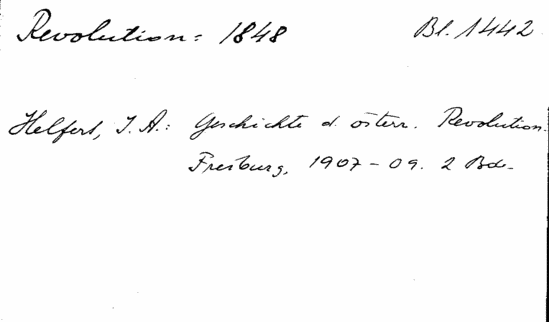 Revolution: 1848 Bl. 1442
Helfert, J. A.: Geschichte d. österr. Revolution.
Freiburg, 1907-09. 2 Bde.